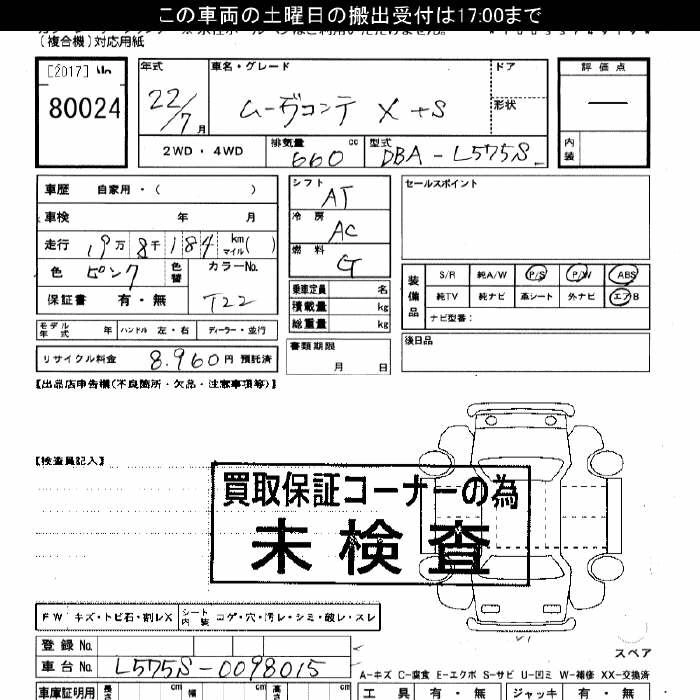 この車両の土曜日の搬出受付は17:00まで
(複合機)対応用紙
[2017] No
80024
年式 22/7 月
車名・グレード ムーヴコンテ X +S
ドア
形状
評価点
—
内装
2WD・4WD
排気量 660 cc
型式 DBA-L575S
車歴 自家用・( )
車検 年 月
走行 19万8千184 km マイル( )
色 ピンク 色替 カラーNo. T22
保証書 有・無
モデル年式 年 ハンドル 左・右 ディーラー・並行
リサイクル料金 8,960円 預託済
シフト AT
冷房 AC
燃料 G
乗車定員 名
積載量 kg
総重量 kg
書類期限
月 日
セールスポイント
装備品
S/R 純A/W P/S P/W ABS
純TV 純ナビ 革シート 外ナビ エアB
ナビ型番:
後日品
【出品店申告欄(不良箇所・欠品・注意事項等)】
【検査員記入】
買取保証コーナーの為
未検査
FW キズ・トビ石・割レX
シート内装 コゲ・穴・汚レ・シミ・破レ・スレ
登録No.
車台No. L575S-0098015
スペア
A-キズ C-腐食 E-エクボ S-サビ U-凹ミ W-補修 XX-交換済
車庫証明用 長さ cm 幅 cm 高さ cm
工具 有・無 ジャッキ 有・無